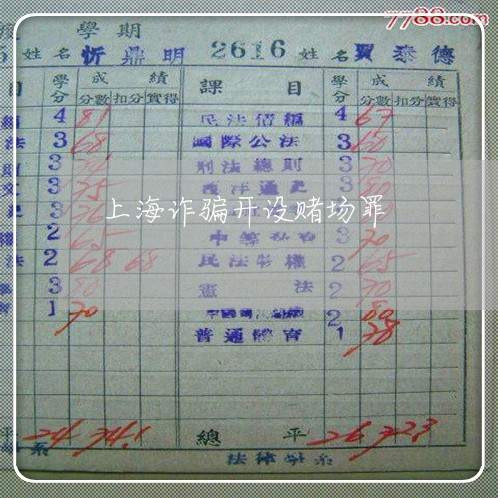 7788.com
學期
姓名 忻鼎明 2616 姓名 賈泰德
目 學分 成績 課目 學分 成績
分數 扣分 實得 分數 扣分 實得
4 81 民法債編 4 67
法 3 68 國際公法 3 60
3 刑法總則 3 70
3 75 西洋通史 3 80
3 76 3
2 65 3 70
法 2 68 68 民法物權 2 65
3 80 憲法 2 70
1 70 2 80
普通體育 1 78
上海诈骗开设赌场罪
平 24 74.1 總平 26 72.3
系 法律學系